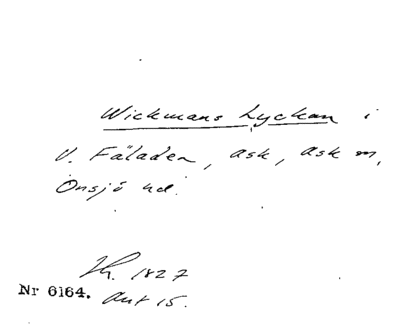 Wickmans Lyckan i
V. Fäladen, ask, ask m,
Onsjö hd.
Th. 1827
Nr 6164. Akt 15.